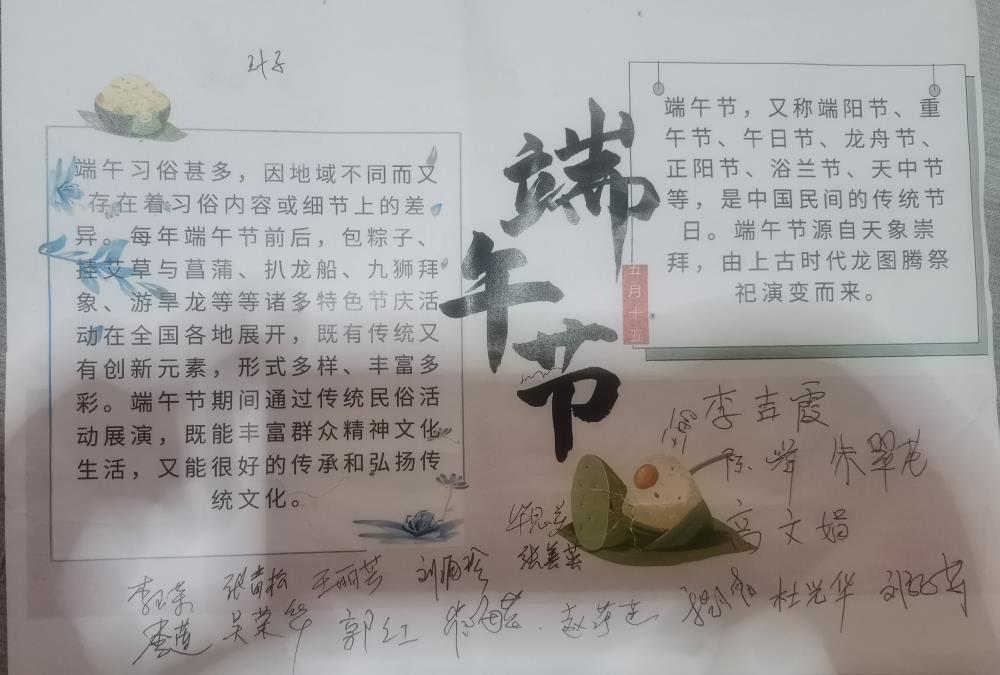 端午习俗甚多，因地域不同而又
存在着习俗内容或细节上的差
异。每年端午节前后，包粽子、
挂艾草与菖蒲、扒龙船、九狮拜
象、游旱龙等等诸多特色节庆活
动在全国各地展开，既有传统又
有创新元素，形式多样、丰富多
彩。端午节期间通过传统民俗活
动展演，既能丰富群众精神文化
生活，又能很好的传承和弘扬传
统文化。
端午节
五月十五
端午节，又称端阳节、重
午节、午日节、龙舟节、
正阳节、浴兰节、天中节
等，是中国民间的传统节
日。端午节源自天象崇
拜，由上古时代龙图腾祭
祀演变而来。
李吉霞
陈峰 朱翠花
高文娟
张善芸
张青松 王丽芸
吴荣华 郭红 杜光华